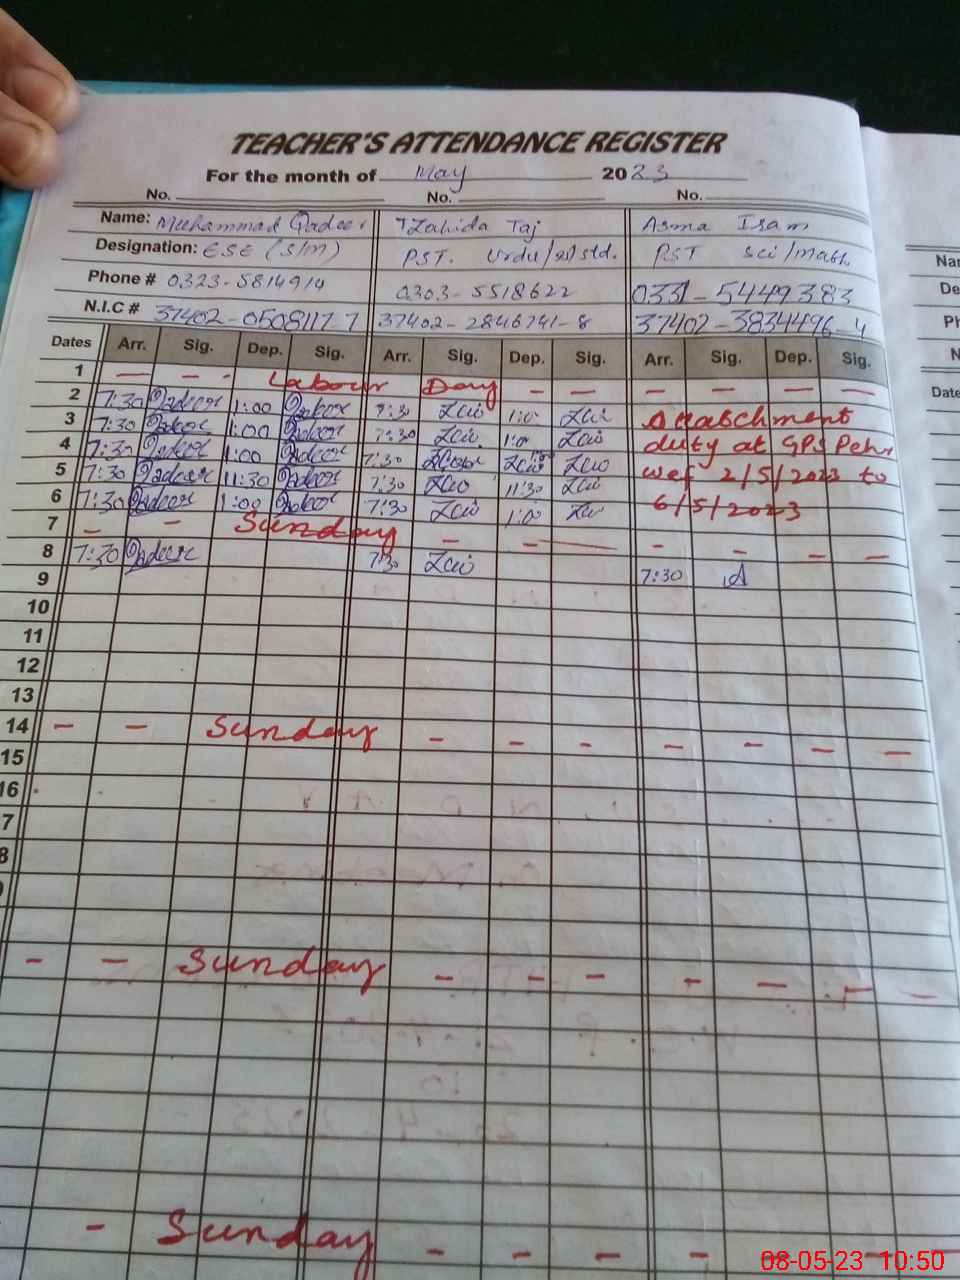 TEACHER'S ATTENDANCE REGISTER
For the month of May 2023
No. No. No.
Name: Muhammad Qadeer Zahida Taj Asma
Designation: ESE (S/M) PST. Urdu/ PST Sci/Math
Phone # 0323-5814914 0303-5518622 0331-5449383
N.I.C # 37402-0508117-7 37402-2846741-8 37402-3834496-4
Dates Arr. Sig. Dep. Sig. Arr. Sig. Dep. Sig. Arr. Sig. Dep. Sig.
1 — - - Labour Day — — — — — —
2 7:30 Qadeer 1:00 Qadeer 7:30 1:00 Attaschment
3 7:30 Qadeer 1:00 Qadeer 7:30 1:00 duty at GPS Pehr
4 7:30 Qadeer 1:00 Qadeer 7:30 wef 2/5/2023 to
5 7:30 Qadeer 11:30 Qadeer 7:30 11:30 6/5/2023
6 7:30 Qadeer 1:00 Qadeer 7:30 1:00
7 - - Sunday - - - - - -
8 7:30 Qadeer 7:30 7:30
9
10
11
12
13
14 - - Sunday - - - - - - -
15
16
7
8
- - Sunday - - - - - - -
- Sunday - - - - -
Na
De
Ph
N
Date
08-05-23 10:50